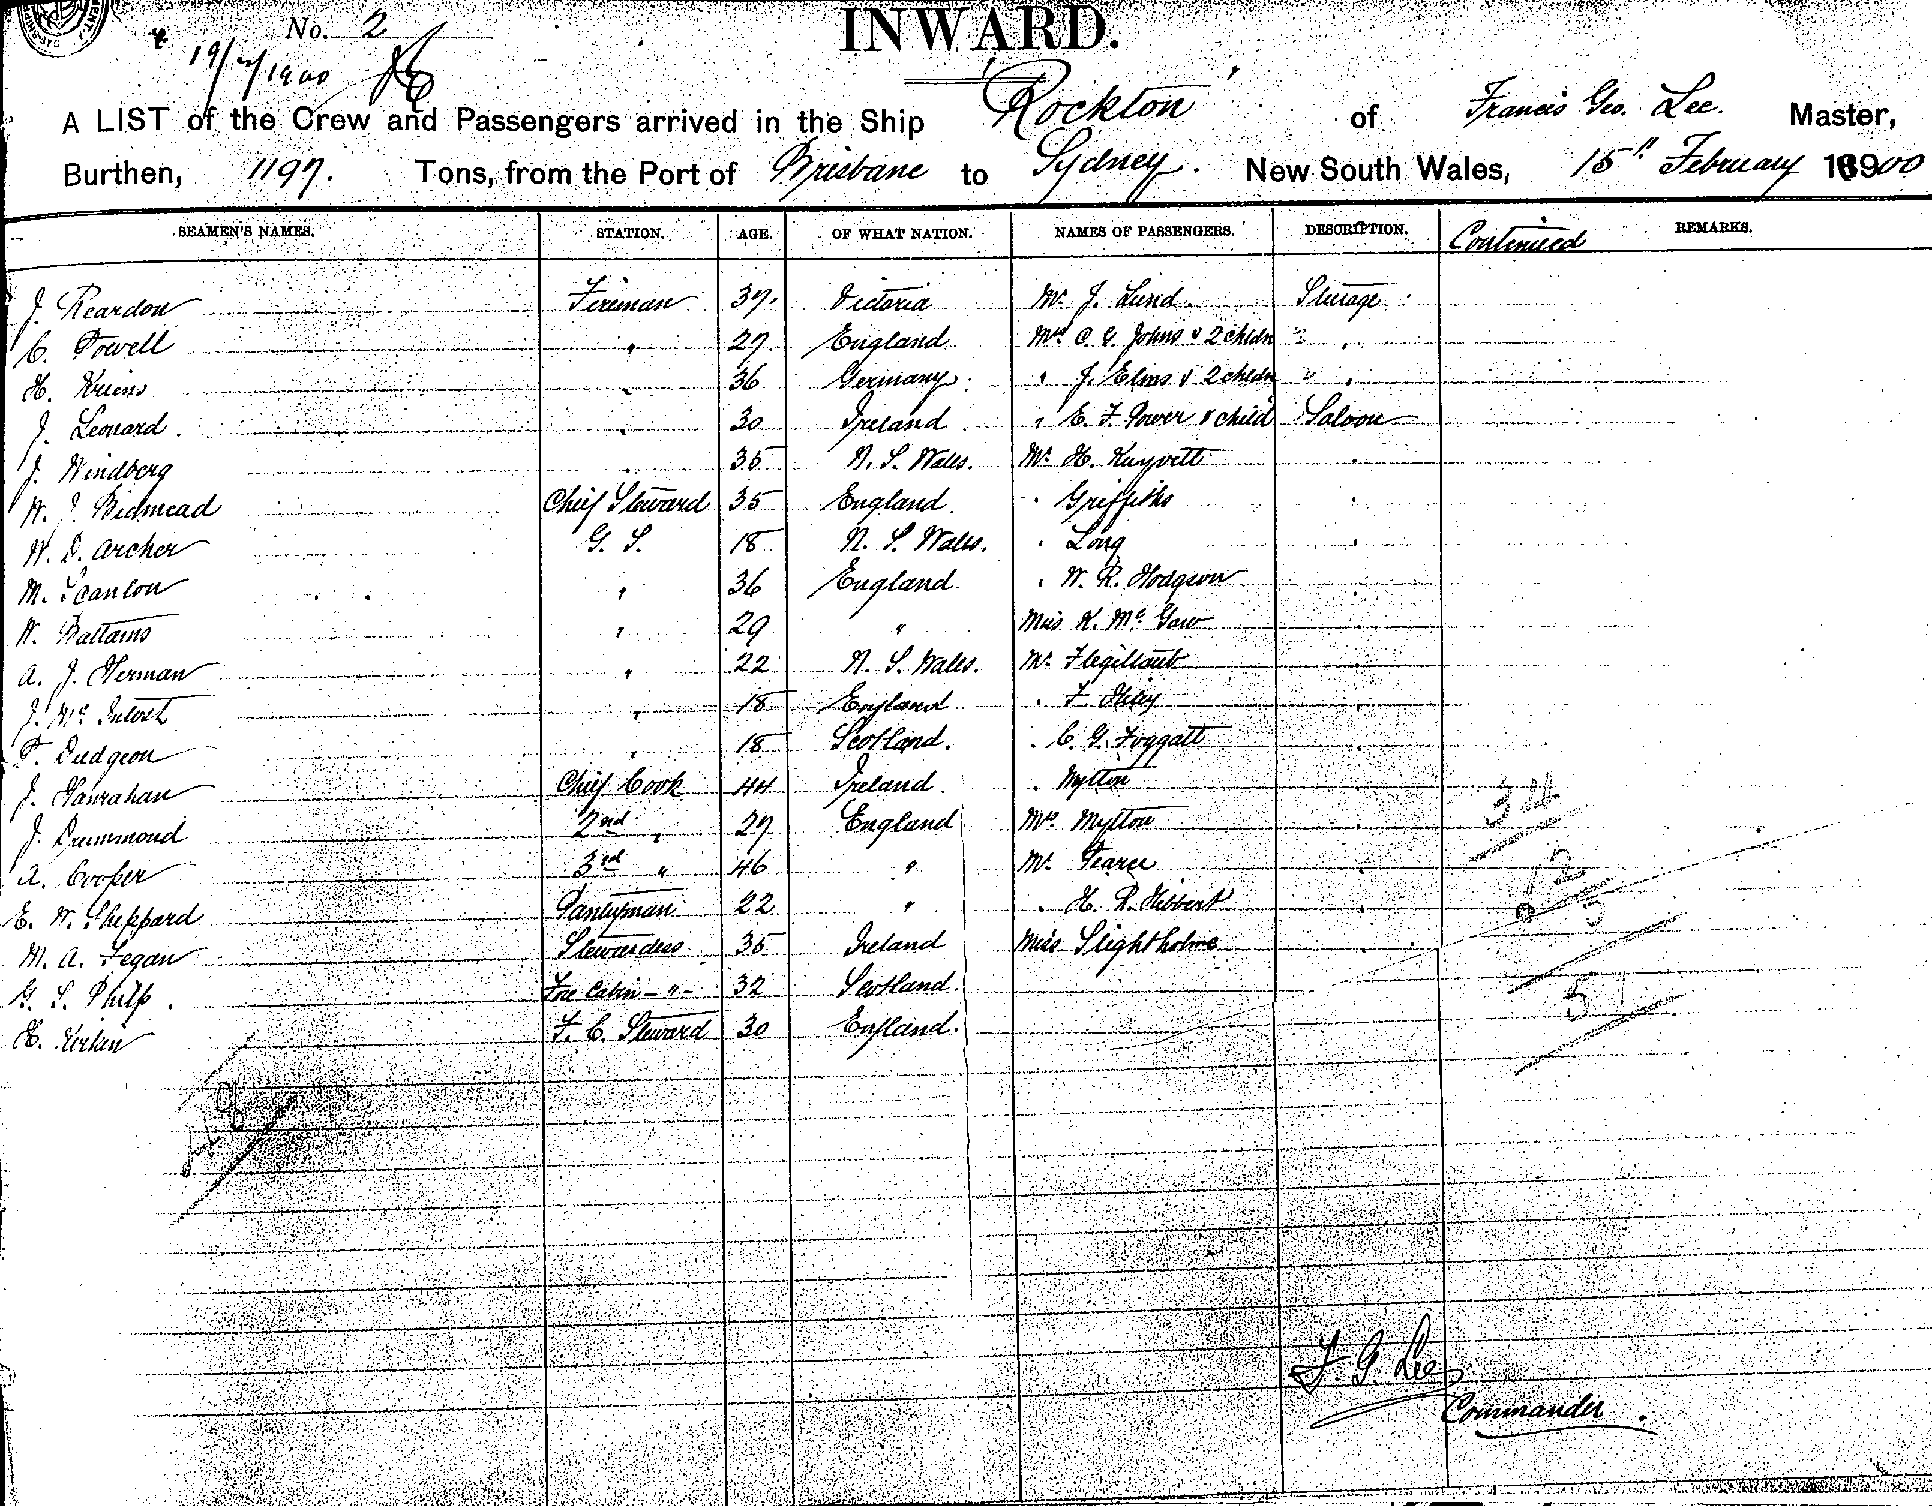 No. 2
INWARD.
19/2/1900
A LIST of the Crew and Passengers arrived in the Ship Rockton of Francis Geo. Lee. Master,
Burthen, 1197. Tons, from the Port of Brisbane to Sydney. New South Wales, 15th February 1900
SEAMEN'S NAMES. STATION. AGE. OF WHAT NATION. NAMES OF PASSENGERS. DESCRIPTION. Continued REMARKS.
J. Reardon Fireman 37. Victoria Mr. J. Lund. Sturage
C. Powell " 27 England Mrs C. G. Johns & 2 chldn " "
H. Kriens " 36 Germany. " J. Elms & 2 chldn " "
J. Leonard. " 30 Ireland " E. F. Power & child Saloon
J. Windberg " 35 N. S. Wales. Mr. H. Kuyvett "
W. J. Bidmead Chief Steward 35 England. " Griffiths "
W. D. Archer G. S. 18 N. S. Wales. " Long "
M. Scanlon " 36 England " W. R. Hodgson
W. Battams " 29 " Miss K. Mc Gaw "
A. J. Herman " 22 N. S. Wales. Mr. "
J. Mc " 18 England " F. "
F. Dudgeon " 18 Scotland. " C. G. Foggatt "
J. Hanrahan Chief Cook 44 Ireland. " Mytton "
J. Drummond 2nd " 27 England Mrs. Mytton "
A. Cooper 3rd " 46 " Mr. Pearce "
E. W. Sheppard Pantryman 22 " " H. R. Hibbert "
M. A. Fegan Stewardess 35 Ireland Miss Slightholme "
G. S. Philp. Fore Cabin - " - 32 Scotland.
H. F. C. Steward 30 England.
34
5
F. G. Lee
Commander.